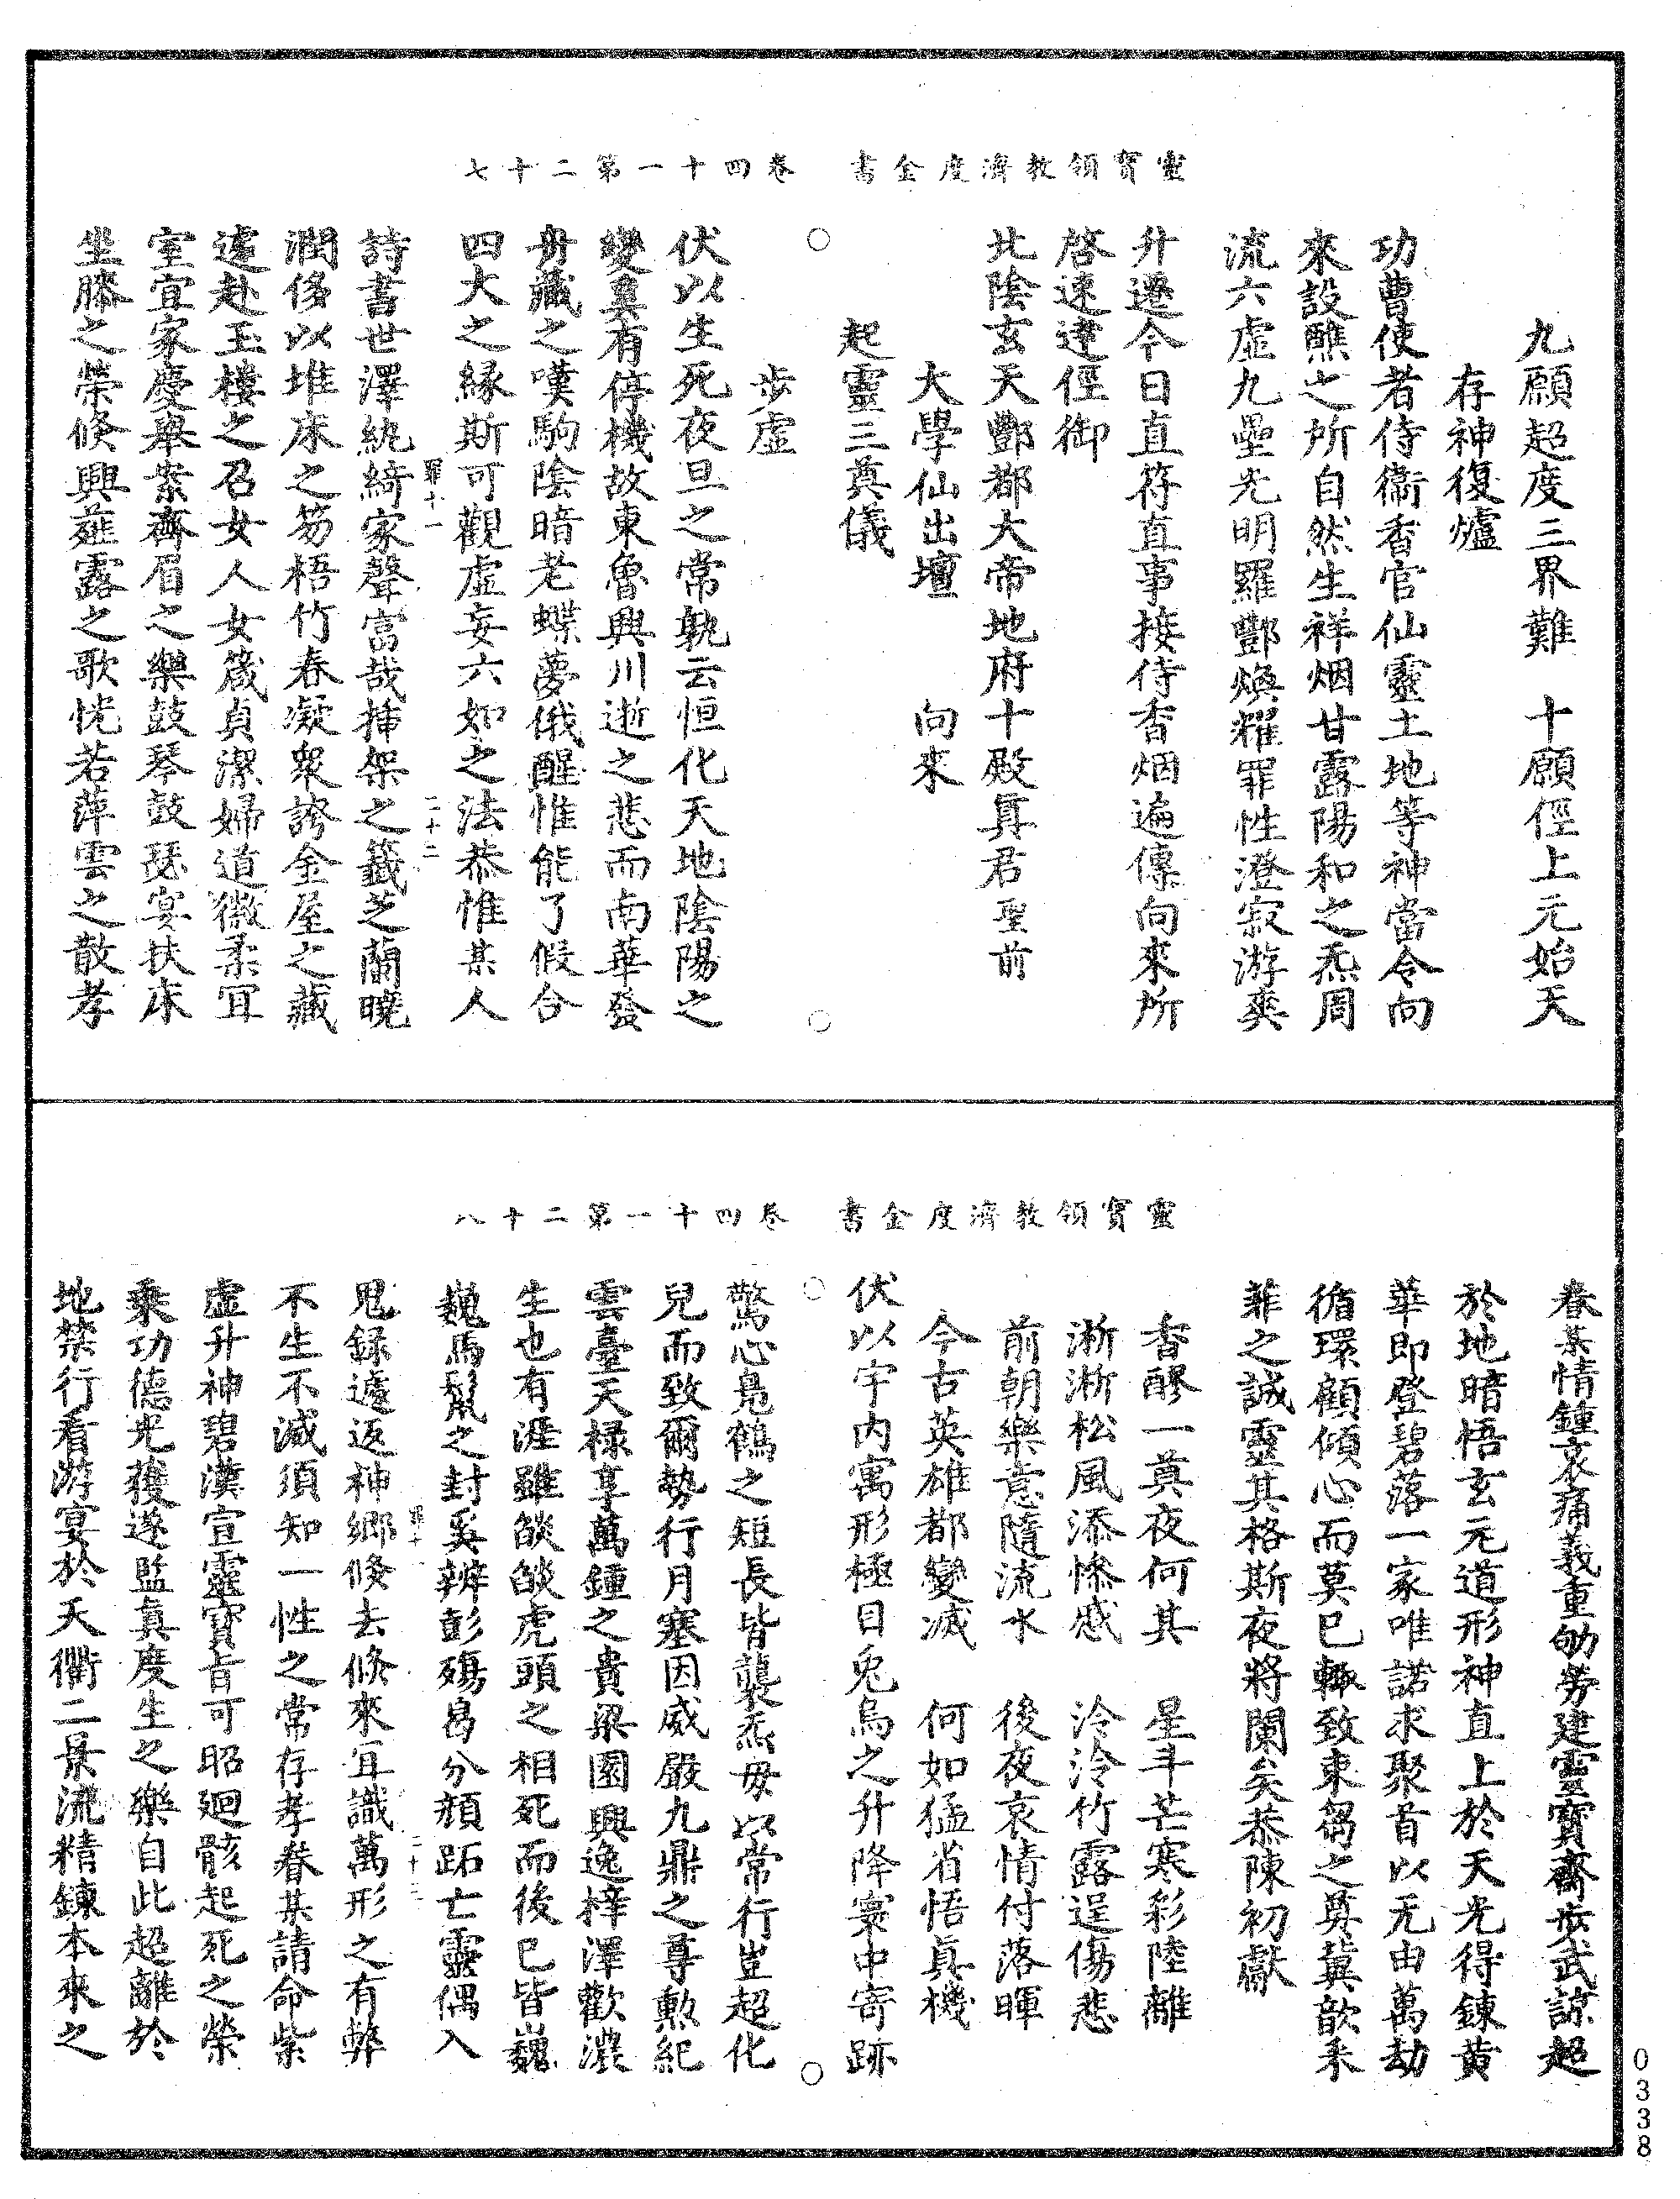 靈寶領教濟度金書　卷四十一第二十七
九願超度三界難　十願徑上元始天
存神復爐
功曹使者侍衞香官仙靈土地等神當令向
來設醮之所自然生祥烟甘露陽和之炁周
流六虛九壘光明羅酆煥耀罪性澄寂游爽
升遷今日直符直事接侍香烟遍傳向來所
啓速達徑御
北陰玄天酆都大帝地府十殿眞君聖前
大學仙出壇　向來
起靈三奠儀
步虛
伏以生死夜旦之常孰云恒化天地陰陽之
變奚有停機故東魯興川逝之悲而南華發
舟藏之嘆駒陰暗老蝶夢俄醒惟能了假合
四大之緣斯可觀虛妄六如之法恭惟某人
罪十一　二十二
詩書世澤紈綺家聲富哉揷架之籤芝蘭曉
潤侈以堆床之笏梧竹春凝衆誇金屋之藏
遽赴玉樓之召女人女箴貞潔婦道徽柔冝
室宜家慶舉案齊眉之樂鼓琴鼓瑟宴扶床
坐膝之榮倏興薤露之歌恍若萍雲之散孝
靈寶領教濟度金書　卷四十一第二十八
眷某情鍾哀痛義重劬勞建靈寶齋步武諒超
於地暗悟玄元道形神直上於天光得鍊黄
華即登碧落一家唯諾求聚首以无由萬劫
循環顧傾心而莫已輙致束芻之奠冀歆釆
菲之誠靈其格斯夜將闌矣恭陳初獻
香醪一奠夜何其　星斗芒寒彩陸離
淅淅松風添慘慼　泠泠竹露逞傷悲
前朝樂意隨流水　後夜哀情付落暉
今古英雄都變滅　何如猛省悟眞機
伏以宇内寓形極目兎烏之升降寰中寄跡
驚心鳧鶴之短長皆襲炁毋以常行豈超化
兒而致爾勢行月塞因威嚴九鼎之尊勲紀
雲臺天禄享萬鍾之貴梁園興逸梓澤歡濃
生也有涯雖燄燄虎頭之相死而後已皆巍
巍馬鬛之封奚辨彭殤曷分顔跖亡靈偶入
罪十一　二十三
鬼録遽返神鄉倏去倏來冝識萬形之有弊
不生不滅須知一性之常存孝眷某請命紫
虛升神碧漢宣靈寶旨可昭廻骸起死之榮
乘功德光獲遂監眞度生之樂自此超離於
地禁行看游宴於天衢二景流精鍊本來之
0338